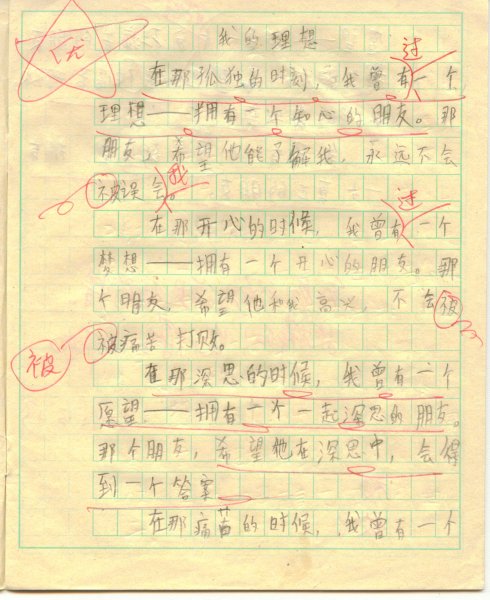 优
我的理想
过
在那孤独的时刻，我曾有一个
理想——拥有一个知心的朋友。那
朋友，希望他能了解我，永远不会
被误会。
我
过
在那开心的时候，我曾有一个
梦想——拥有一个开心的朋友。那
个朋友，希望他和我高兴，不会被
被痛苦打败。
被
在那深思的时候，我曾有一个
愿望——拥有一个一起深思的朋友。
那个朋友，希望他在深思中，会得
到一个答案
在那痛苦的时候，我曾有一个